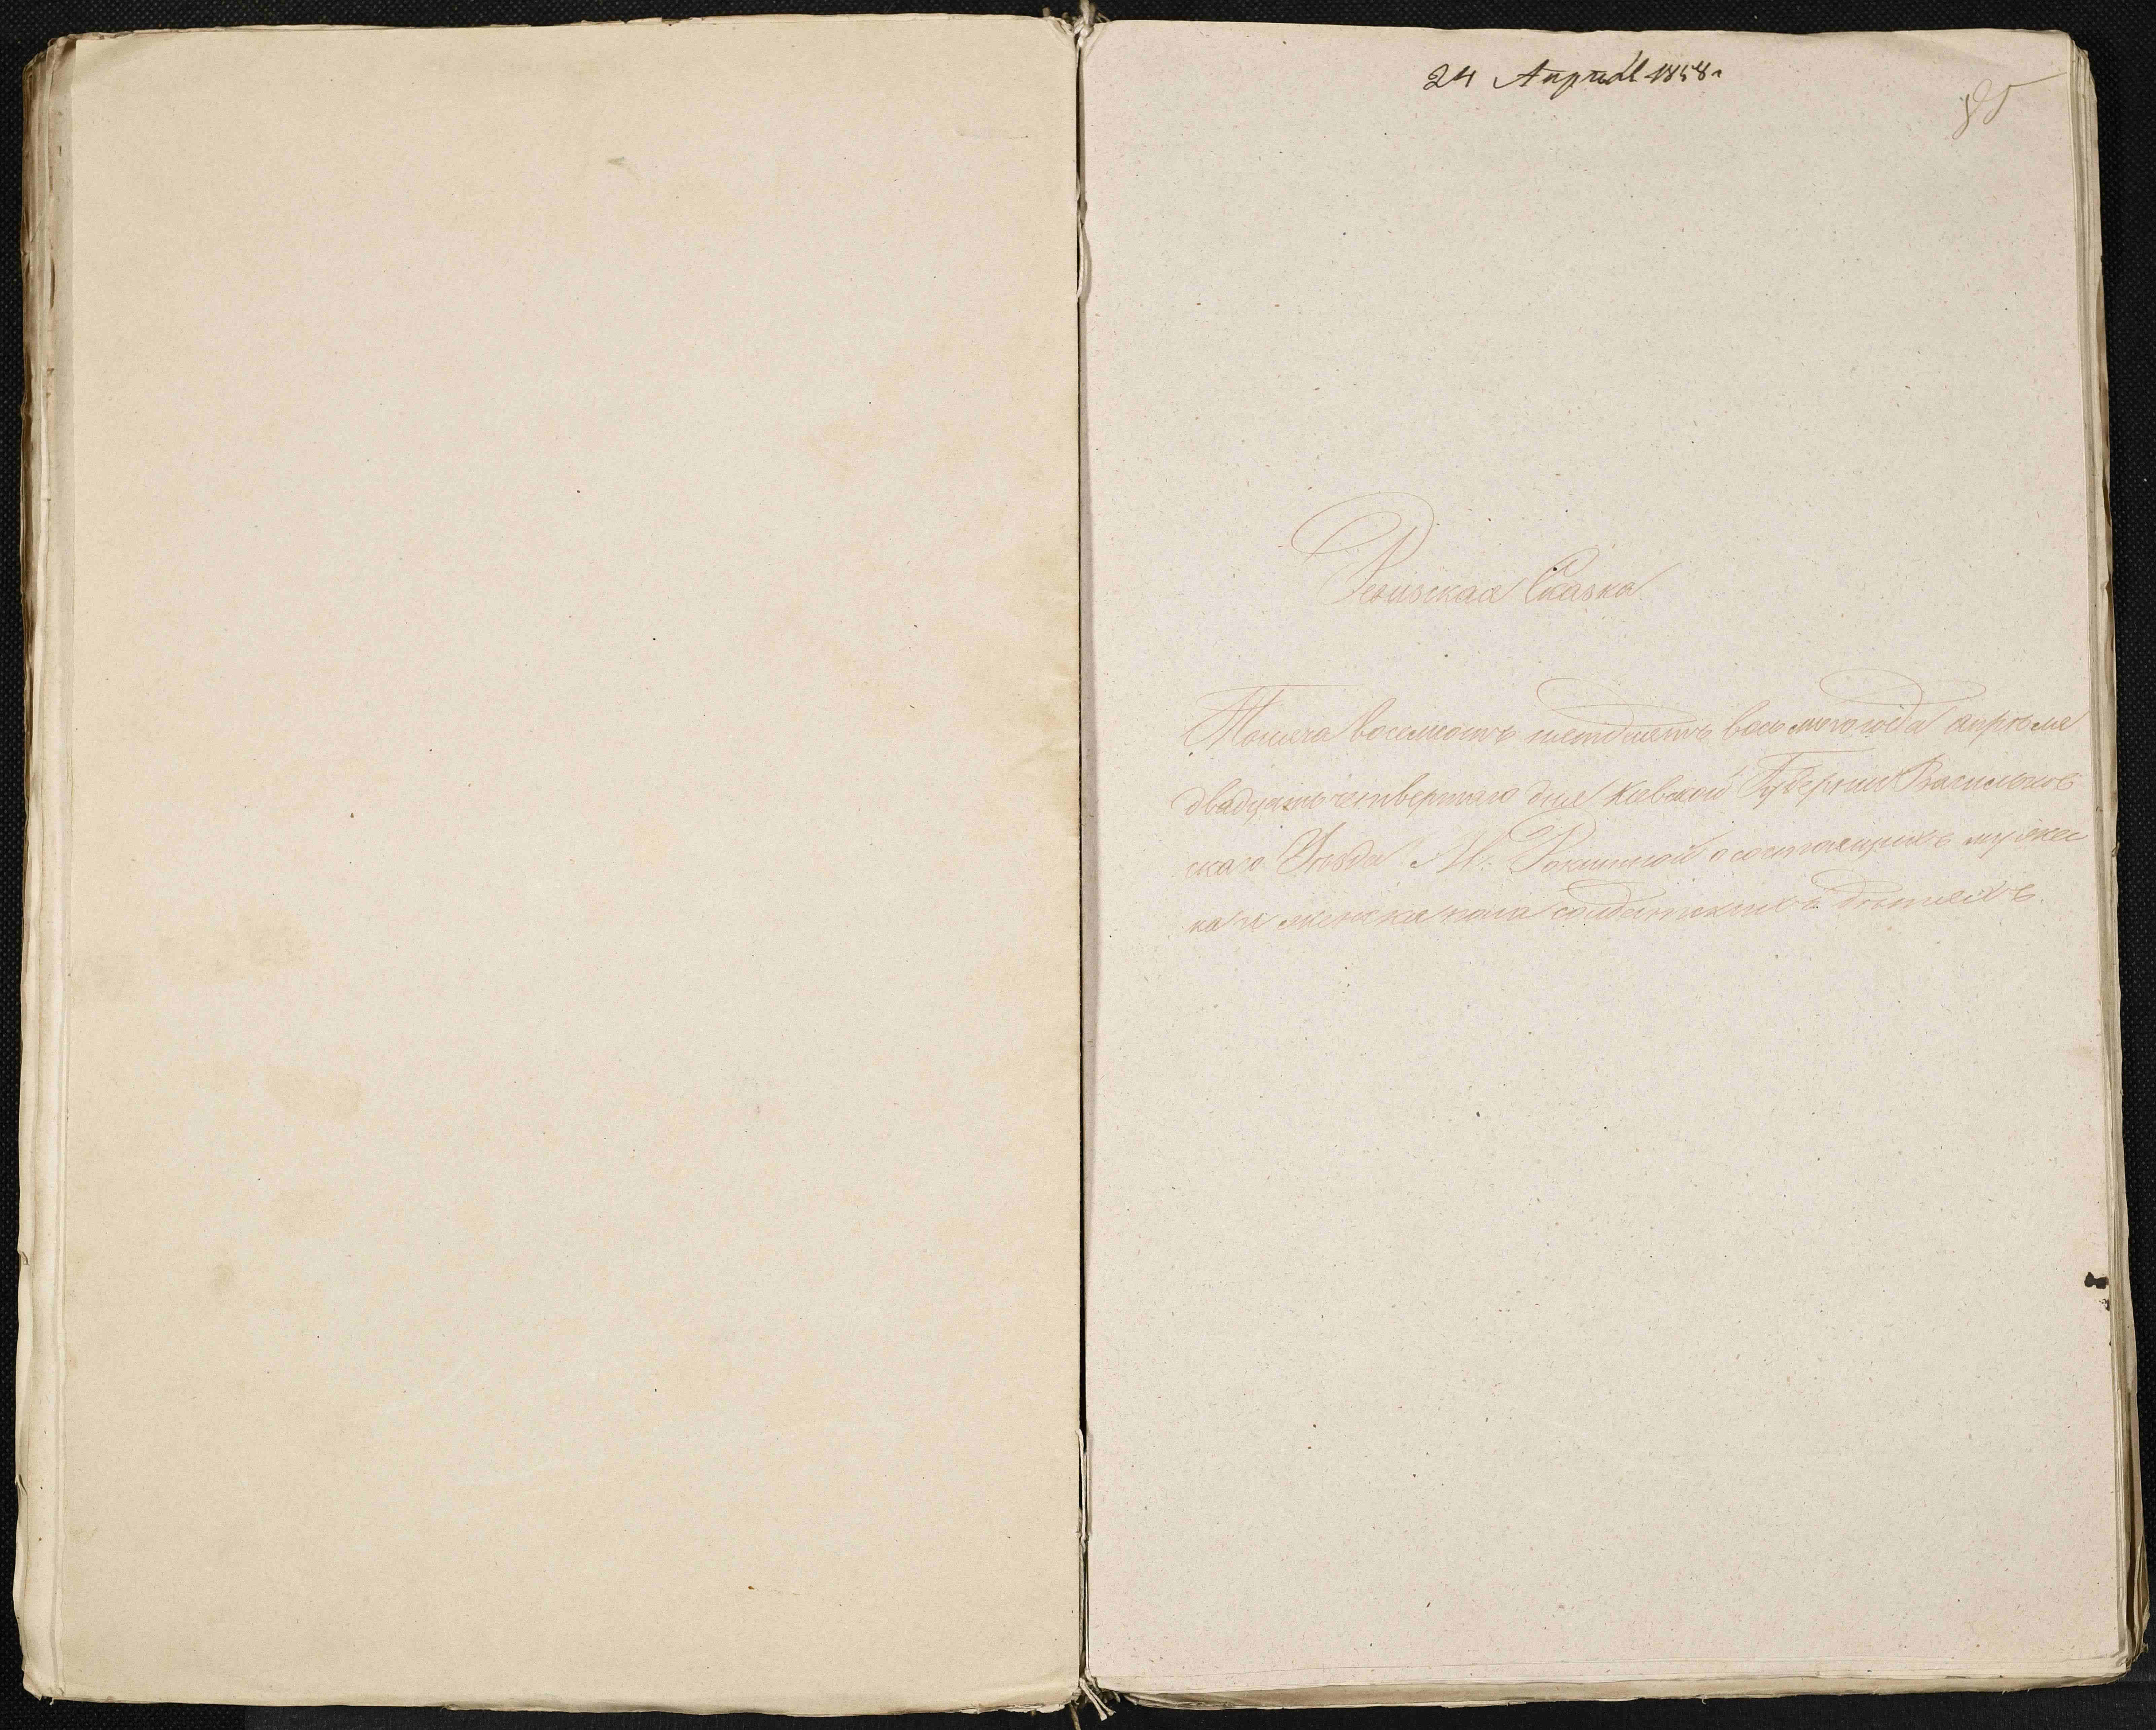 24 Апрѣль 1858 г
85
Ревизская Сказка
Тысяча восемьсотъ пятдесятъ восьмого года апрѣля
двадцать четвертаго дня Кіевской Губерніи Васильков
скаго Уѣзда М. Рокитной о состоящихъ мужес
ка и женска пола солдатскихъ дѣтяхъ.